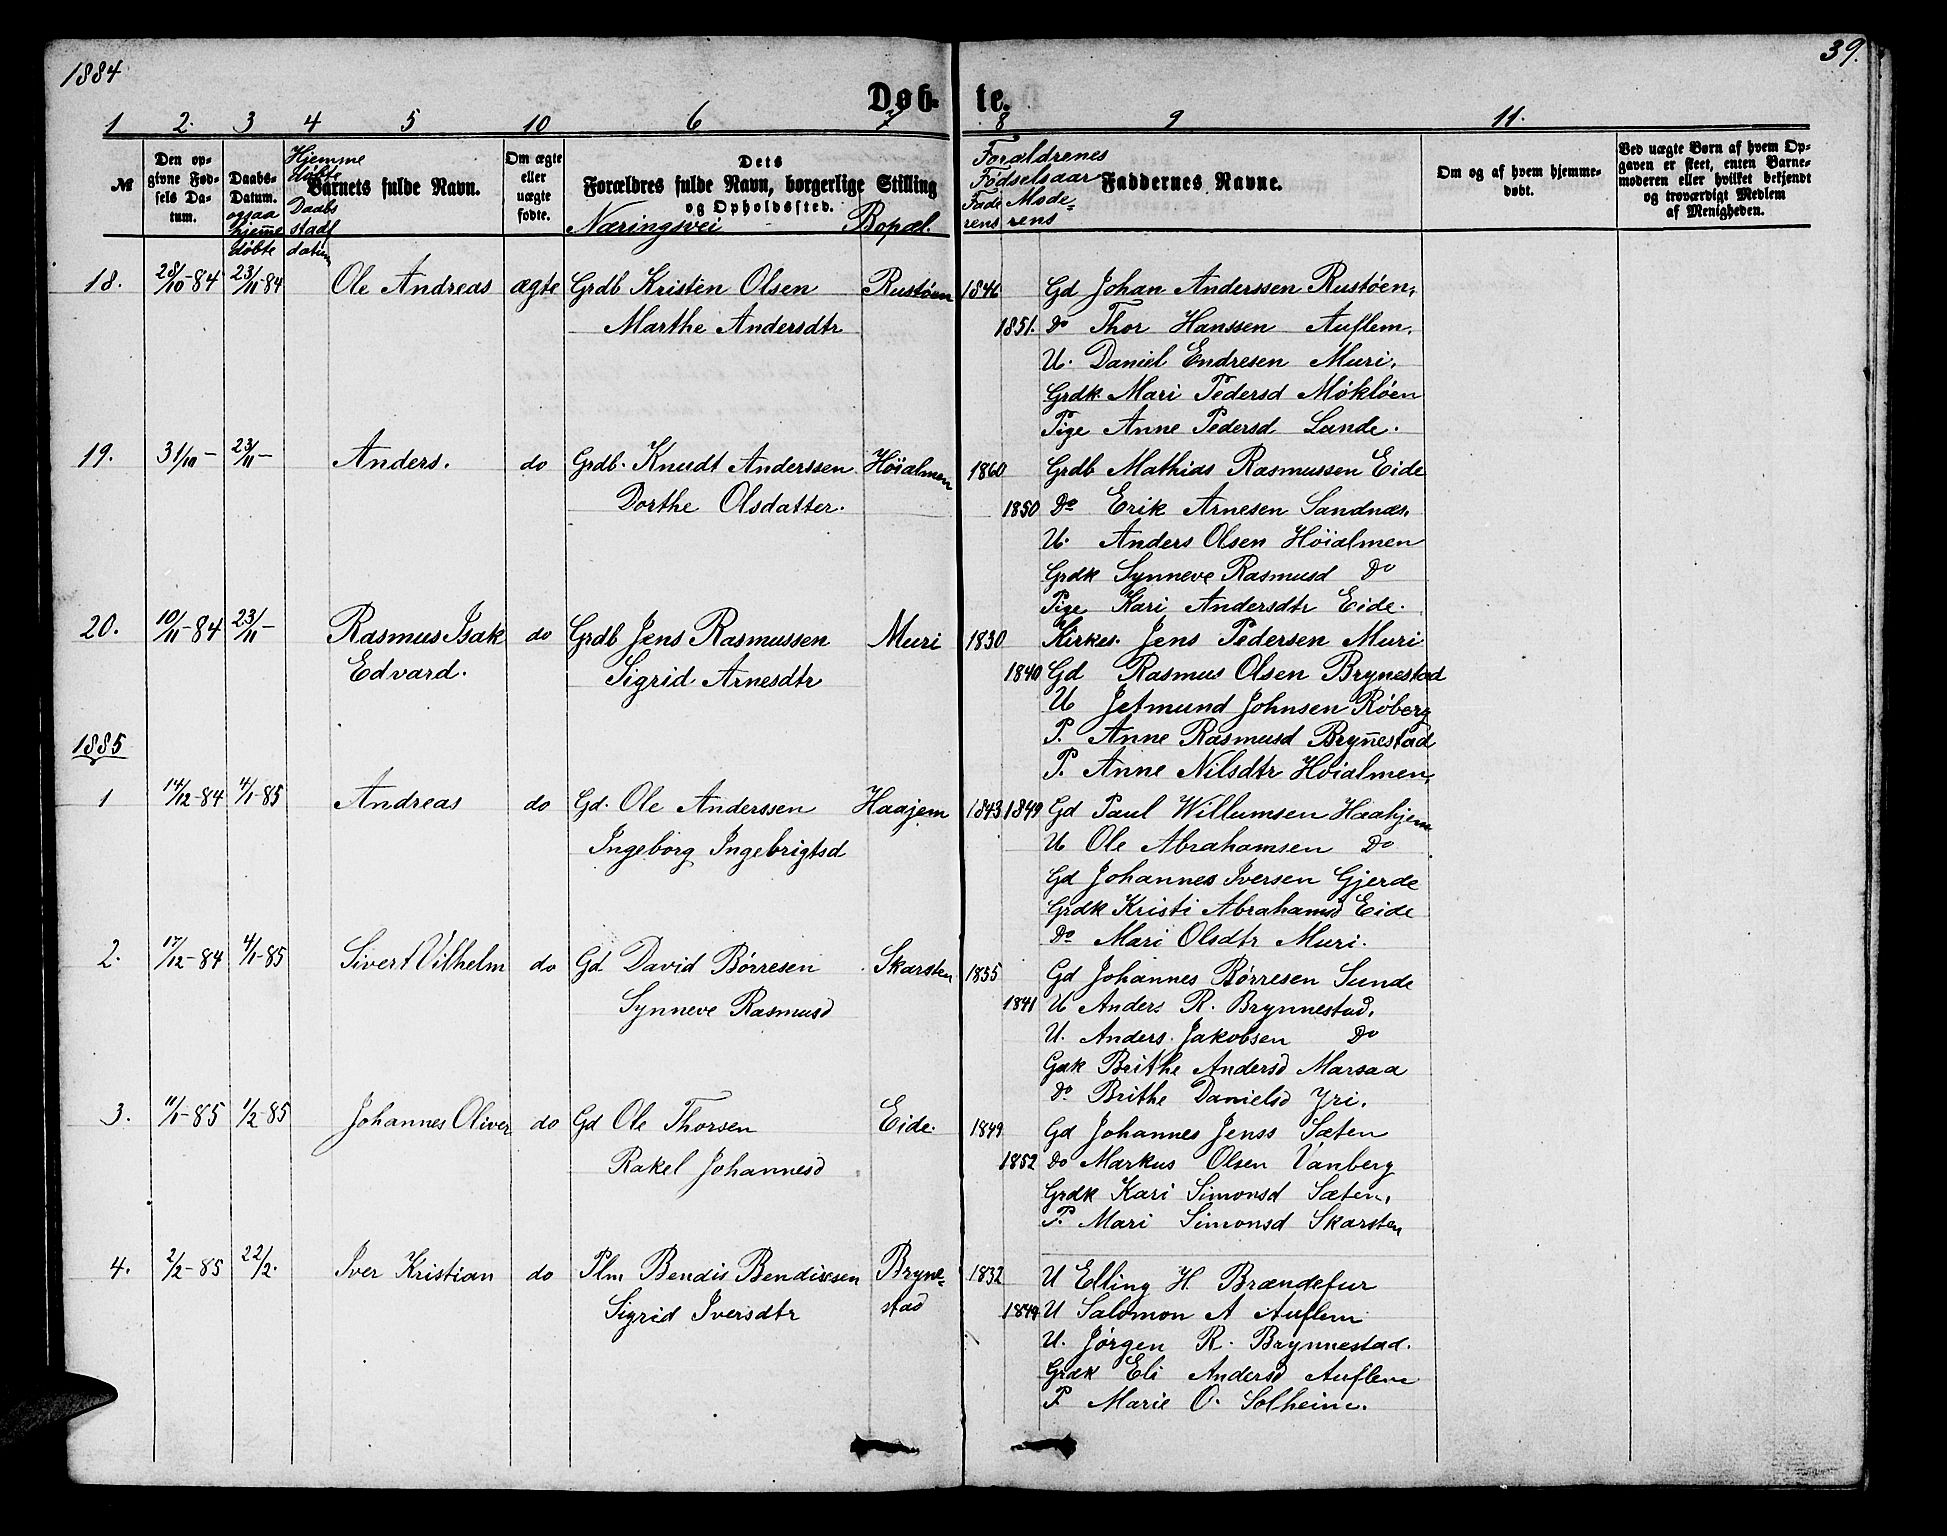 1884
39.
Døb- te.
1 2. 3 4 5 10 6 7 8 9 11.
№
Den op-
givne Fød-
sels Da-
tum.
Daabs-
Datum.
ogsaa
hjemme
døbte
Hjemme
døbte
Daabs
stadf
datum
Barnets fulde Navn.
Om ægte
eller
uægte
fødte.
Dets
Forældres fulde Navn, borgerlige Stilling
og Opholdssted.
Næringsvei Bopæl.
Forældrenes
Fødselsaar
Fade Mode-
rens rens
Faddernes Navne.
Om og af hvem hjemme-
døbt.
Ved uægte Børn af hvem Op-
gaven er skeet, enten Barne-
moderen eller hvilket bekjendt
og troværdigt Medlem
af Menigheden.
18. 28/10-84 23/11-84 Ole Andreas ægte Grdb Kristen Olsen Rustøen 1846 Gd Johan Anderssen Rustøen,
Marthe Andersdtr 1851. Do Thor Hanssen Auflem.
U. Daniel Endresen Muri.
Grdk. Mari Pedersd Mókløen
Pige Anne Pedersd Lunde.
19. 31/10- 23/11- Anders. do Grdb. Knudt Anderssen Höialmen 1860 Grdb Mathias Rasmussen Eide
Dorthe Olsdatter. 1850 Do Erik Arnesen Sandnæs.
U. Anders Olsen Höialmen
Grdk Synneve Rasmusd Do
Pige Kari Andersdtr Eide.
20. 10/11-84 23/11- Rasmus Isak do Grdb Jens Rasmussen Muri 1830 Kirkes. Jens Pedersen Muri
Edvard. Sigrid Arnesdtr 1840 Gd Rasmus Olsen Brynestad
U Jetmund Johnsen Róberg
1885 P. Anne Rasmusd Brynestad
P. Anne Nilsdtr Höialmen,
1 14/12-84 4/1-85 Andreas do Gd. Ole Anderssen Haajem 1843 1849 Gd Paul Willumsen Haahjem
Ingeborg Ingebrigtsd U Ole Abrahamsen Do
Gd Johannes Iversen Gjerde
Grdk Kristi Abrahamsd Eide
Do Mari Olsdtr Muri.
2. 17/12-84 4/1-85 Sivert Vilhelm do Gd David Börresen Skarsten 1835 Gd Johannes Börresen Sunde
Synneve Rasmusd 1841 U Anders R. Brynnestad.
U. Anders. Jakobsen Do
Gdk Brithe Andersd Marsaa
Do Brithe Danielsd Yri.
3. 11/1-85 1/2-85 Johannes Oliver do Gd Ole Thorsen Eide. 1849 Gd Johannes Jenss Sæten
Rakel Johannesd 1852 Do Markus Olsen Vanberg
Grdk Kari Simonsd Sæten,
P. Mari Simonsd Skarsten
4. 2/2-85 22/2. Iver Kristian do Plm Bendis Bendixsen Bryne- 1832 U Elling H Brændefur
Sigrid Iversdtr stad 1849 U Salomon A Auflem
U. Jørgen R. Brynnestad.
Grdk Eli Andersd Auflem
P. Marie O. Solheim.